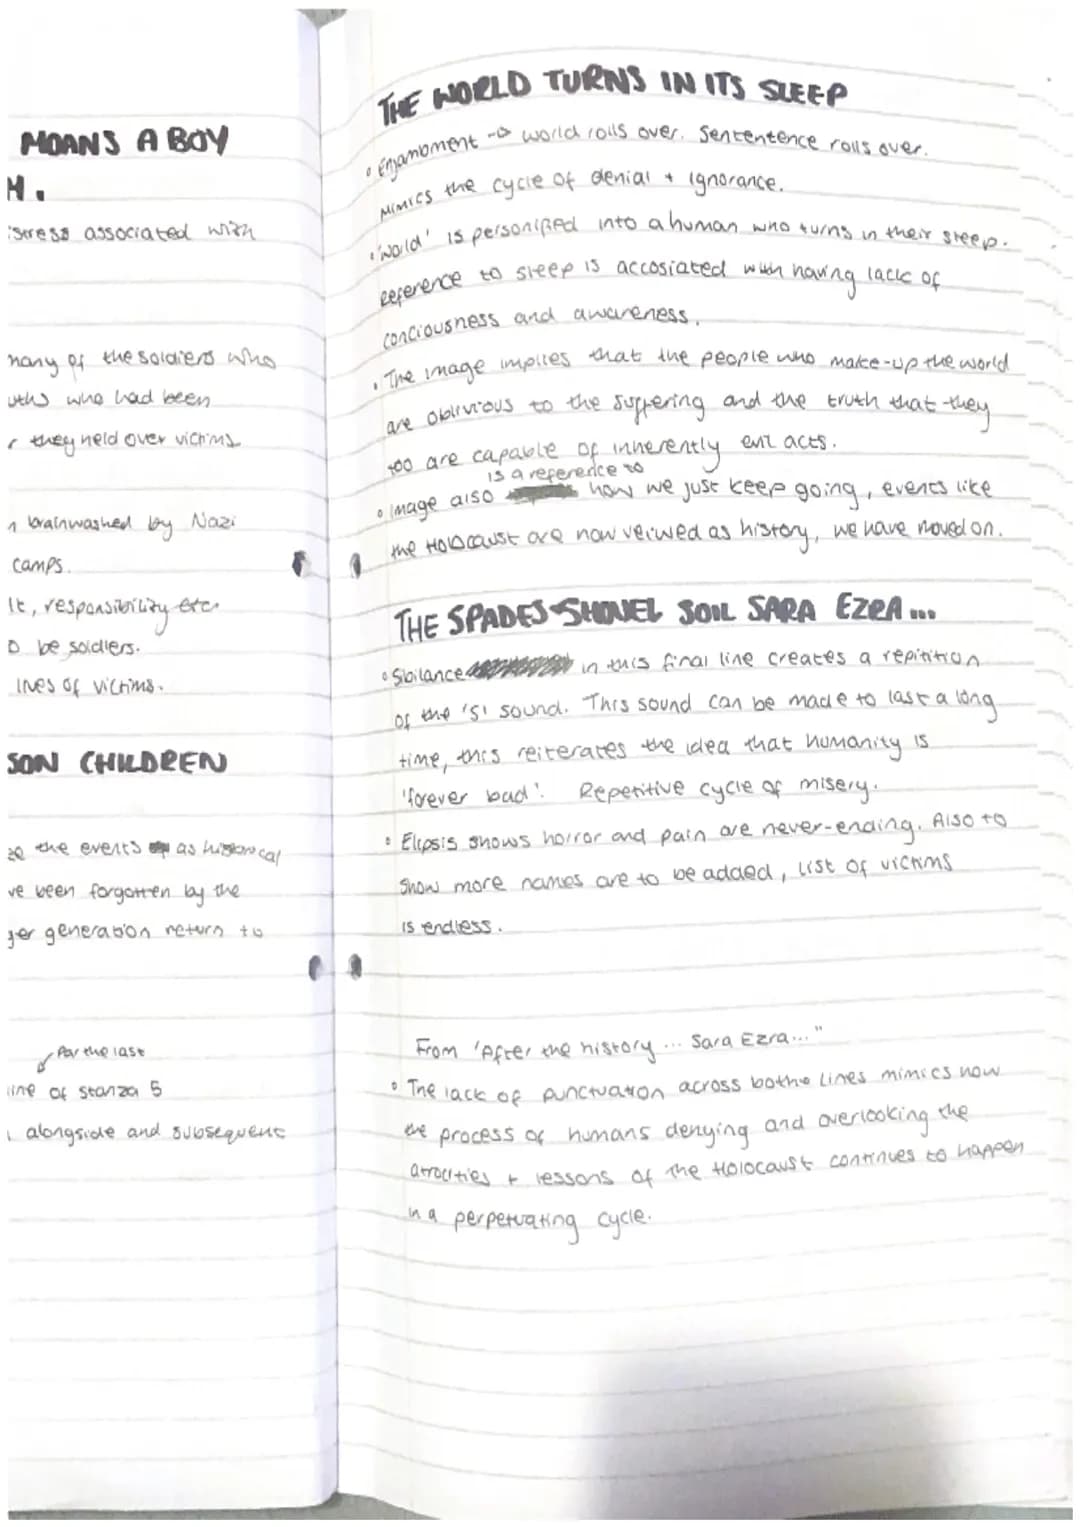 MOANS A BOY
H.
istress associated with
many of the soldiers who
uths who had been
r they held over victims
n brainwashed by Nazi
camps.
lt, responsibility etc
o be soldiers.
lives of victims.
SON CHILDREN
ee the events as historical
ve been forgotten by the
ger generation return to
For the last
line of stanza 5
alongside and subsequent
THE WORLD TURNS IN ITS SLEEP
• Enjambment → world rolls over. Sententence rolls over.
Mimics the cycle of denial + ignorance.
• 'World' is personified into a human who turns in their sleep.
Reference to sleep is accosiated with having lack of
conciousness and awareness.
• The image implies that the people who make-up the world
are oblivious to the suffering and the truth that they
too are capable of inherently evil acts.
is a reference to
• Image also how we just keep going, events like
the Holocaust are now veiwed as history, we have moved on.
THE SPADES SHOVEL SOIL SARA EZRA...
• Sibilance in this final line creates a repitition
of the 's' sound. This sound can be made to last a long
time, this reiterates the idea that humanity is
'forever bad'. Repetitive cycle of misery.
• Elipsis shows horror and pain are never-ending. Also to
show more names are to be added, list of victims
is endless.
From 'After the history ... Sara Ezra..."
• The lack of punctuation across bothe lines mimics how
the process of humans denying and overlooking the
atrocities + lessons of the Holocaust continues to happen
in a perpetuating cycle.